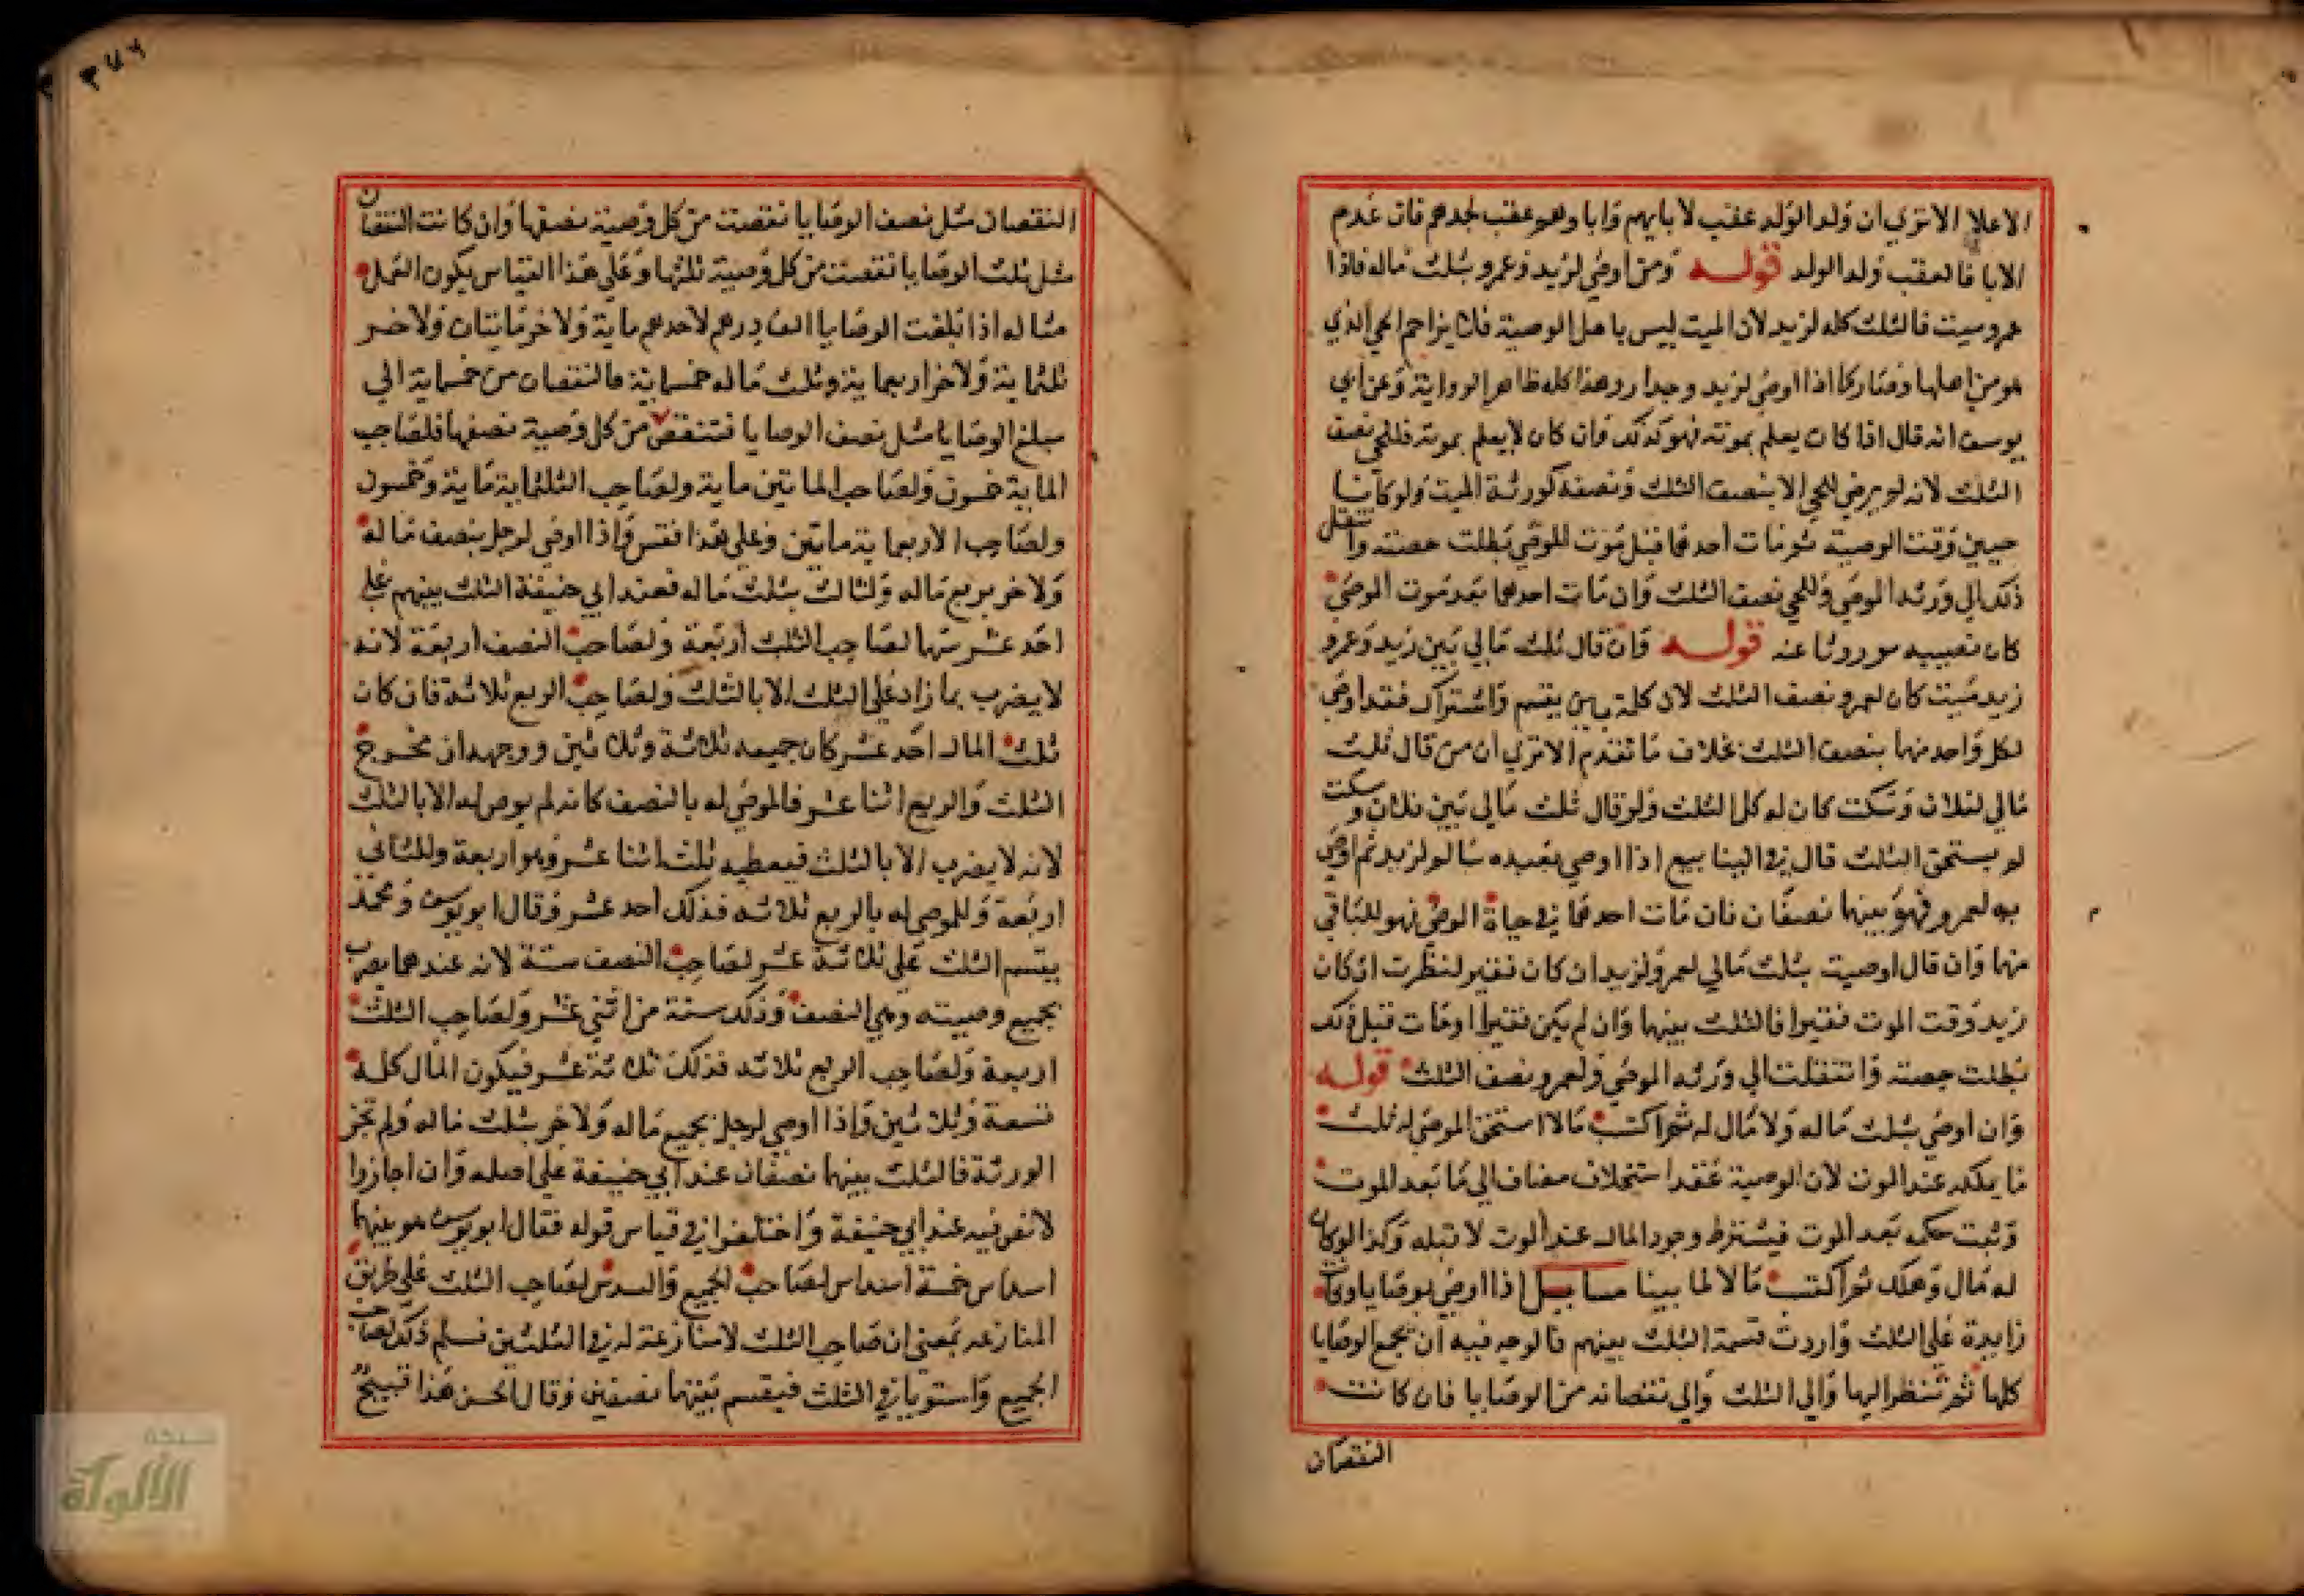 الاعلا الا تري ان ولد الولد عقب لابايهم وابا وهو عقب لجدهم فان عدم
الابا فالعقب ولد الولد قوله ومن اوصي لزيد وعمرو بثلث ماله فاذا
عمرو ميت فالثلث كله لزيد لان الميت ليس باهل الوصية فلا يزاحم الحي الذي
هو من اهلها وصار كما اذا اوصي لزيد وجدار وهذا كله ظاهر الرواية وعن ابي
يوسف انه قال اذا كان يعلم بموته فهو كذلك وان كان لا يعلم بموته فللحي نصف
الثلث لانه لم يرض للحي الا بنصف الثلث ونصفه لورثة الميت ولو كانا
حيين وقت الوصية ثم مات احدهما قبل موت الموصي بطلت حصته وانتقل
ذلك الي ورثة الموصي وللحي نصف الثلث وان مات احدهما بعد موت الموصي
كان نصيبه موروثا عنه قوله وان قال ثلث مالي بين زيد وعمرو
زيد ميت كان لعمرو نصف الثلث لان كلمة بين يقسم واشتراك فقد اوصي
لكل واحد منهما بنصف الثلث بخلاف ما تقدم الا تري ان من قال ثلث
مالي لفلان وسكت كان له كل الثلث ولو قال ثلث مالي بين فلان وسكت
لم يستحق الثلث قال في الينابيع اذا اوصي بعبده سالم لزيد ثم اوصي
به لعمرو فهو بينهما نصفان فان مات احدهما في حياة الموصي فهو للباقي
منهما وان قال اوصيت بثلث مالي لعمرو ولزيد ان كان فقير لنظرت ان كان
زيد وقت الموت فقيرا فالثلث بينهما وان لم يكن فقيرا او مات قبل ذلك
بطلت حصته وانتقلت الي ورثة الموصي ولعمرو نصف الثلث قوله
وان اوصي بثلث ماله ولا مال له ثم اكتسب مالا استحق الموصي له ثلث
ما يملكه عند الموت لان الوصية عقد استخلاف مضاف الي ما بعد الموت
وثبت حكمه بعد الموت فيشترط وجود المال عند الموت لا قبله وكذا لو كان
له مال وهلك ثم اكتسب مالا لما بينا مسايل اذا اوصي بوصايا
زايدة علي الثلث واردت قسمة الثلث بينهم فالوجه فيه ان يجمع الوصايا
كلها ثم تنظر اليها والي الثلث والي نقصانه من الوصايا فان كانت
النقصان
٣٧٦
النقصان مثل نصف الوصايا نقصت من كل وصية نصفها وان كانت النقصان
مثل ثلث الوصايا نقصت من كل وصية ثلثها وعلي هذا القياس يكون العمل
مثاله اذا بلغت الوصايا الف درهم لاحدهم ماية ولاخر مايتان ولاخر
ثلثماية ولاخر اربعماية وثلث ماله خمسماية فالنقصان من خمسماية الي
مبلغ الوصايا مثل نصف الوصايا فتنقص من كل وصية نصفها فلصاحب
الماية خمسون ولصاحب الماتين ماية ولصاحب الثلثماية ماية وخمسون
ولصاحب الاربعماية ماتين وعلي هذا فقس واذا اوصي لرجل بنصف ماله
ولاخر بربع ماله ولثالث بثلث ماله فعند ابي حنيفة الثلث بينهم علي
احد عشر سهما لصاحب الثلث اربعة ولصاحب النصف اربعة لانه
لا يضرب بما زاد علي الثلث الا بالثلث ولصاحب الربع ثلاثة فان كان
ثلث المال احد عشر كان جميعه ثلاثة وثلاثين ووجهه ان مخرج
الثلث والربع اثنا عشر فالموصي له بالنصف كانه لم يوص له الا بالثلث
لانه لا يضرب الا بالثلث فيعطيه ثلث اثنا عشر وهو اربعة وللثاني
اربعة وللموصي له بالربع ثلاثه فذلك احد عشر وقال ابو يوسف ومحمد
يقسم الثلث علي ثلاثة عشر لصاحب النصف ستة لانه عندهما يضرب
بجميع وصيته وهي النصف وذلك ستة من اثني عشر ولصاحب الثلث
اربعة ولصاحب الربع ثلاثه فذلك ثلاثة عشر فيكون المال كله
تسعة وثلاثين واذا اوصي لرجل بجميع ماله ولاخر بثلث ماله ولم تجز
الورثة فالثلث بينهما نصفان عند ابي حنيفة علي اصله وان اجازوا
لا نص فيه عند ابي حنيفة واختلفوا في قياس قوله فقال ابو يوسف هو بينهما
اسداس خمسة اسداس لصاحب الجميع والسدس لصاحب الثلث علي طريق
المنازعه بمعني ان صاحب الثلث لا منازعة له في الثلثين فسلم ذلك لصاحب
الجميع واستويا في الثلث فيقسم بينهما نصفين وقال الحسن هذا قبيح
شبكة
الألوكة